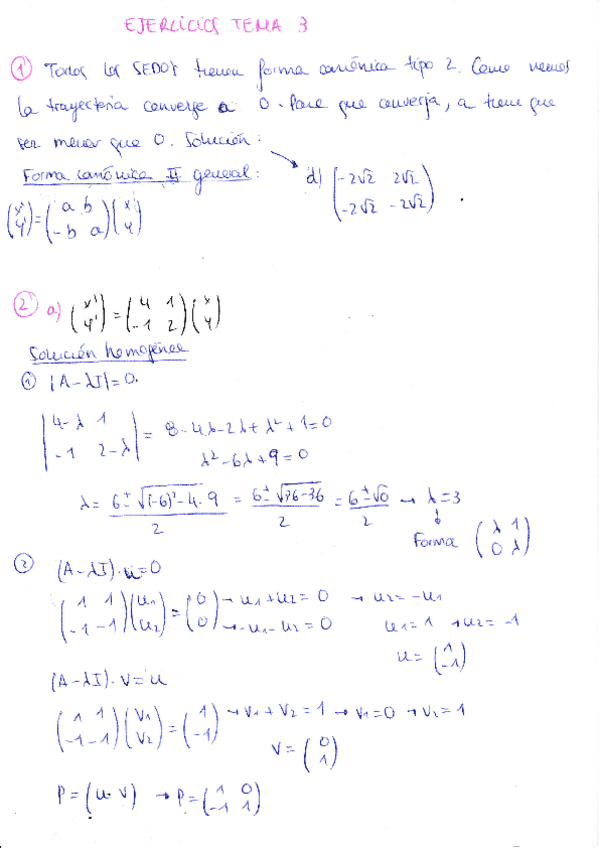 EJERCICIOS TEMA 3
① Todos los SEDO's tienen forma canónica tipo 2. Como vemos
la trayectoria converge a 0. Para que converja, a tiene que
ser menor que 0. Solución:
Forma canónica II general: d) (-2√2 2√2
-2√2 -2√2)
(x' y') = (a b
-b a) (x y)
② a) (x' y') = (4 1
-1 2) (x y)
Solución homogénea
① |A-λI|=0.
|4-λ 1
-1 2-λ| = 8-4λ-2λ+λ²+1=0
λ²-6λ+9=0
λ = 6±√(-6)²-4·9 / 2 = 6±√36-36 / 2 = 6±√0 / 2 → λ=3
↓
Forma (λ 1
0 λ)
② (A-λI)·u=0
(1 1
-1 -1) (u1 u2) = (0 0) → u1+u2=0 → u2=-u1
→ -u1-u2=0 u1=1 → u2=-1
u=(1 -1)
(A-λI)·v=u
(1 1
-1 -1) (v1 v2) = (1 -1) → v1+v2=1 → v1=0 → v2=1
v=(0 1)
P=(u v) → P=(1 0
-1 1)